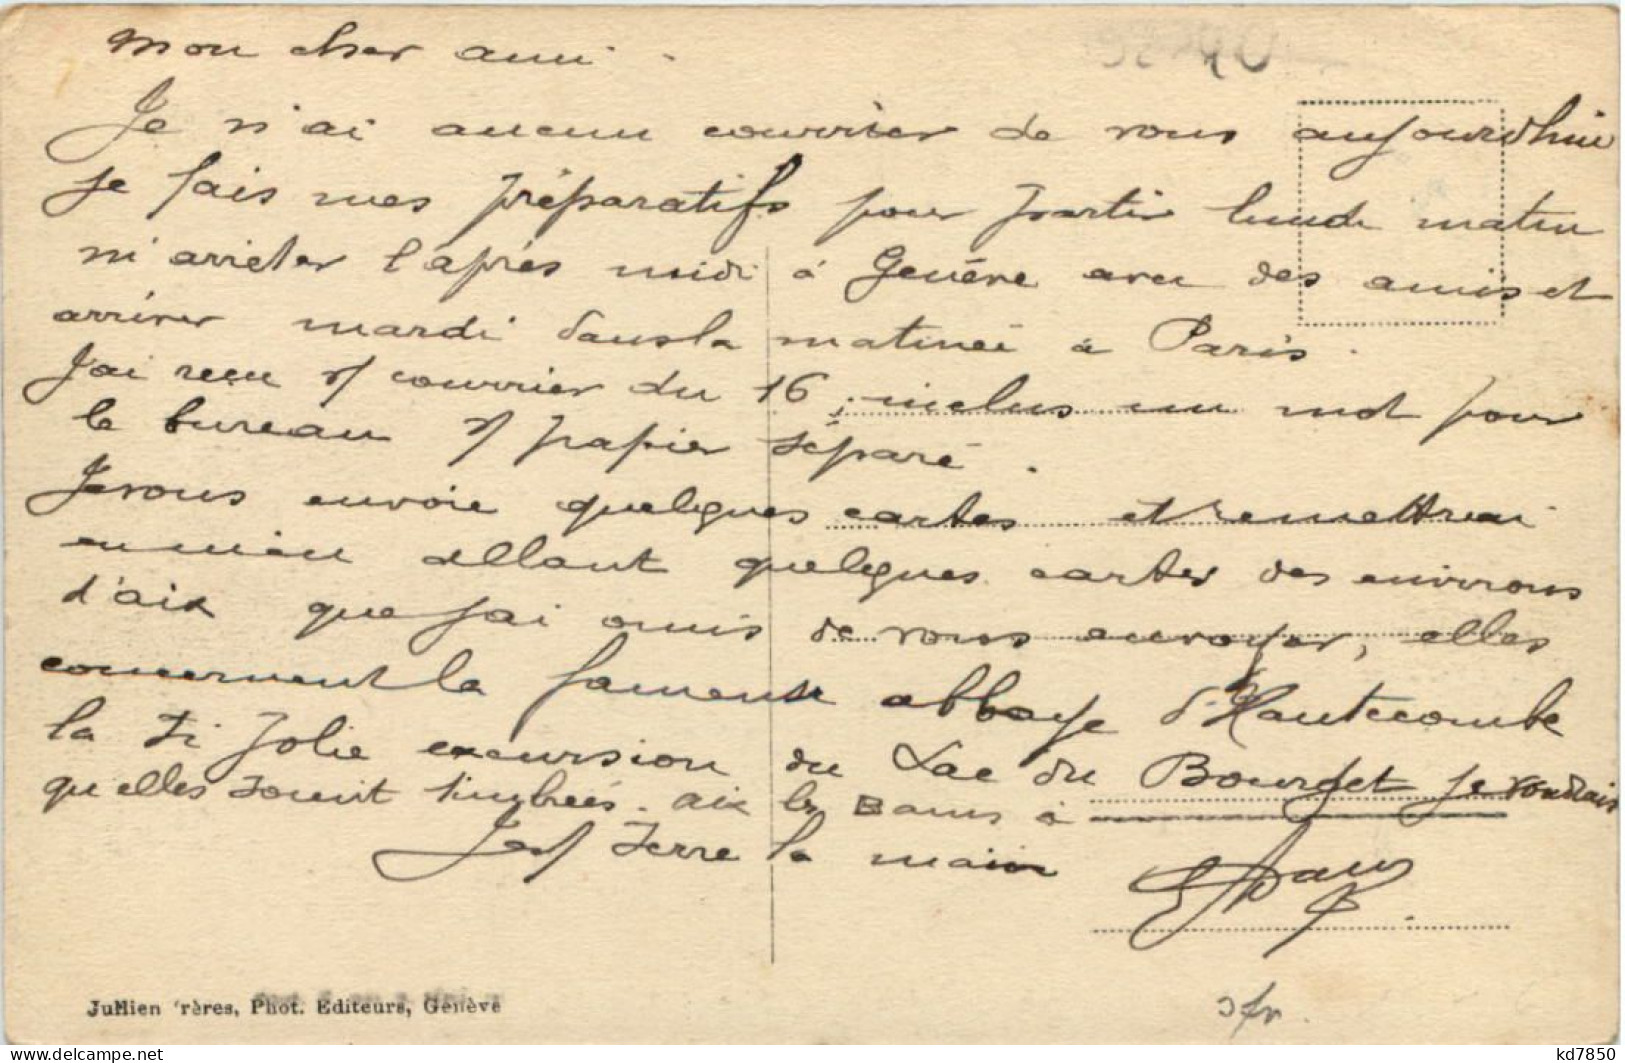 Mon cher ami.
Je n'ai aucun courrier de vous aujourdhui
je fais mes préparatifs pour partir lundi matin
m'arrêter l'après midi à Genève avec des amis et
arriver mardi dans la matinée à Paris.
J'ai recu v/ courrier du 16, inclus un mot pour
le bureau s/ papier séparé.
Je vous envoie quelques cartes et remettrai
en m'en allant quelques cartes des environs
d'aix que j'ai omis de vous envoyer, elles
concernent la fameuse abbaye d'Hautecombe
la si jolie excursion du Lac du Bourget je voudrais
qu'elles soient timbrées. aix les Bains à
Je v/ serre la main
Jullien frères, Phot. Editeurs, Genève
3fr.
kd7850